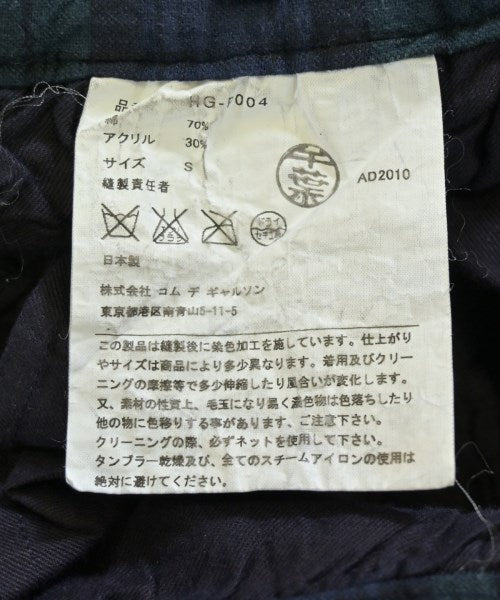 品 HG- 004
綿 70%
アクリル 30%
サイズ S
縫製責任者
千葉
AD2010
ドライ
セキユ系
日本製
株式会社 コム デ ギャルソン
東京都港区南青山5-11-5
この製品は縫製後に染色加工を施しています。仕上がり
やサイズは商品により多少異なります。着用及びクリー
ニングの摩擦等で多少伸縮したり風合いが変化します。
又、素材の性質上、毛玉になり易く濃色物は色落ちしたり
他の物に色移りする事があります、ご注意下さい。
クリーニングの際、必ずネットを使用して下さい。
タンブラー乾燥及び、全てのスチームアイロンの使用は
絶対に避けてください。